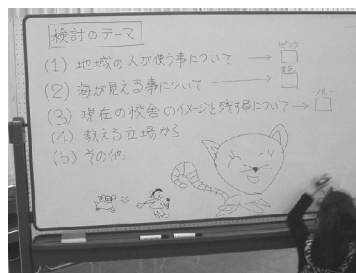 検討のテーマ
(1) 地域の人が使う事について → ピンク
(2) 海が見える事について → 黄色
(3) 現在の校舎のイメージを残す事について → ブルー
(4) 教える立場から
(5) その他